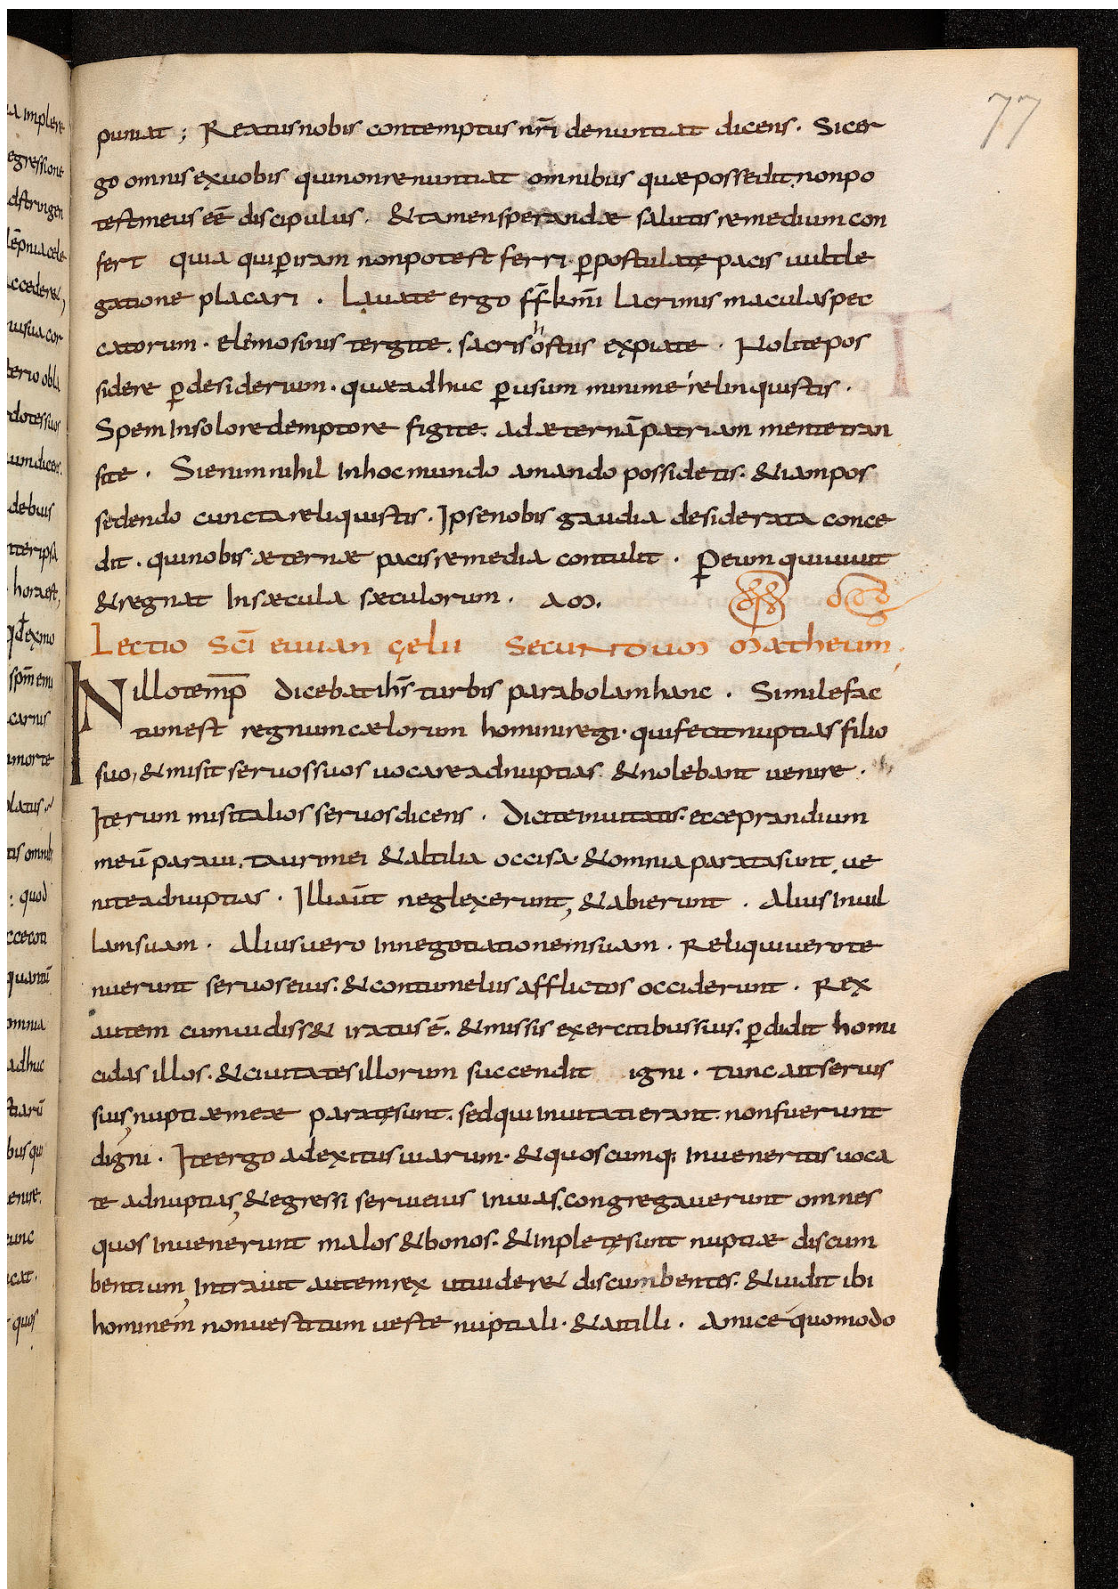 77
puniat ; Reatus nobis contemptus nr̄i denuntiat dicens · Sic er
go omnis ex uobis qui non renuntiat omnibus quæ possedit, non po
test meus eē discipulus · & tamen sperandæ salutis remedium con
fert quia qui p̲ iram non potest ferri · p̲ postulatę pacis uult le
gatione placari · Lauate ergo ff̄ km̄i lacrimis maculas pec
catorum · elemosinis tergite · sacris hostiis expiate · Nolite pos
sidere p̲ desiderium · quæ adhuc p̲ usum minime relinquistis ·
Spem In solo redemptore figite · ad æternā patriam mente tran
site · Si enim nihil In hoc mundo amando possidetis · & iam pos
sedendo cuncta reliquistis · Ipse nobis gaudia desiderata conce
dit · qui nobis æternæ pacis remedia contulit · P̲ eum qui uiuit
& regnat In sæcula sæculorum · am̄.
Lectio sc̄i euuangelii secundum matheum.
IN illo temp̄ dicebat ih̄s turbis parabolam hanc · Simile fac
tum est regnum cælorum homini regi · qui fecit nuptias filio
suo, & misit seruos suos uocare ad nuptias · & nolebant uenire ·
Iterum misit alios seruos dicens · Dicite inuitatis · ecce prandium
meū paraui, tauri mei & altilia occisa · & omnia parata sunt, ue
nite ad nuptias · Illi aūt neglexerunt, & abierunt · Alius In uil
lam suam · Alius uero In negotiationem suam · Reliqui uero te
nuerunt seruos eius · & contumeliis afflictos occiderunt · Rex
autem cum uidiss& iratus ē · & missis exercitibus suis, p̲didit homi
cidas illos · & ciuitates illorum succendit igni · tunc ait seruis
suis, nuptiæ meæ paratę sunt · sed qui Inuitati erant · non fuerunt
digni · Ite ergo ad exitus uiarum · & quoscumq; Inueneritis uoca
te ad nuptias, & egressi serui eius In uias, congregauerunt omnes
quos Inuenerunt malos & bonos · & Inpletę sunt nuptiæ discum
bentium, Intrauit autem rex ut uider& discumbentes · & uidit ibi
hominem non uestitum ueste nuptiali · & ait illi · Amice quomodo